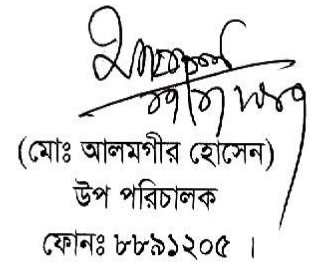 (মোঃ আলমগীর হোসেন)
উপ পরিচালক
ফোনঃ ৮৮৯১২০৫ ।